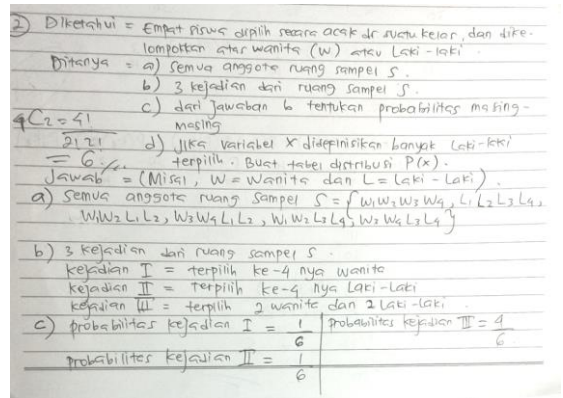 ② Diketahui = Empat siswa dipilih secara acak dr suatu kelas, dan dike-
lompokkan atas wanita (W) atau Laki-laki.
Ditanya = a) Semua anggota ruang sampel S.
b) 3 kejadian dari ruang sampel S.
c) dari jawaban b tentukan probabilitas masing-
masing
4C2 = 4!
2!2!
= 6
d) Jika variabel X didefinisikan banyak Laki-laki
terpilih. Buat tabel distribusi P(x).
Jawab = (Misal, W = Wanita dan L = Laki-Laki)
a) Semua anggota ruang sampel S = {W1W2W3W4, L1L2L3L4,
W1W2L1L2, W3W4L1L2, W1W2L3L4, W3W4L3L4}
b) 3 kejadian dari ruang sampel S.
kejadian I = terpilih ke-4 nya wanita
kejadian II = terpilih ke-4 nya Laki-Laki
kejadian III = terpilih 2 wanita dan 2 Laki-Laki.
c) probabilitas kejadian I = 1/6
probabilitas kejadian III = 4/6
probabilitas kejadian II = 1/6